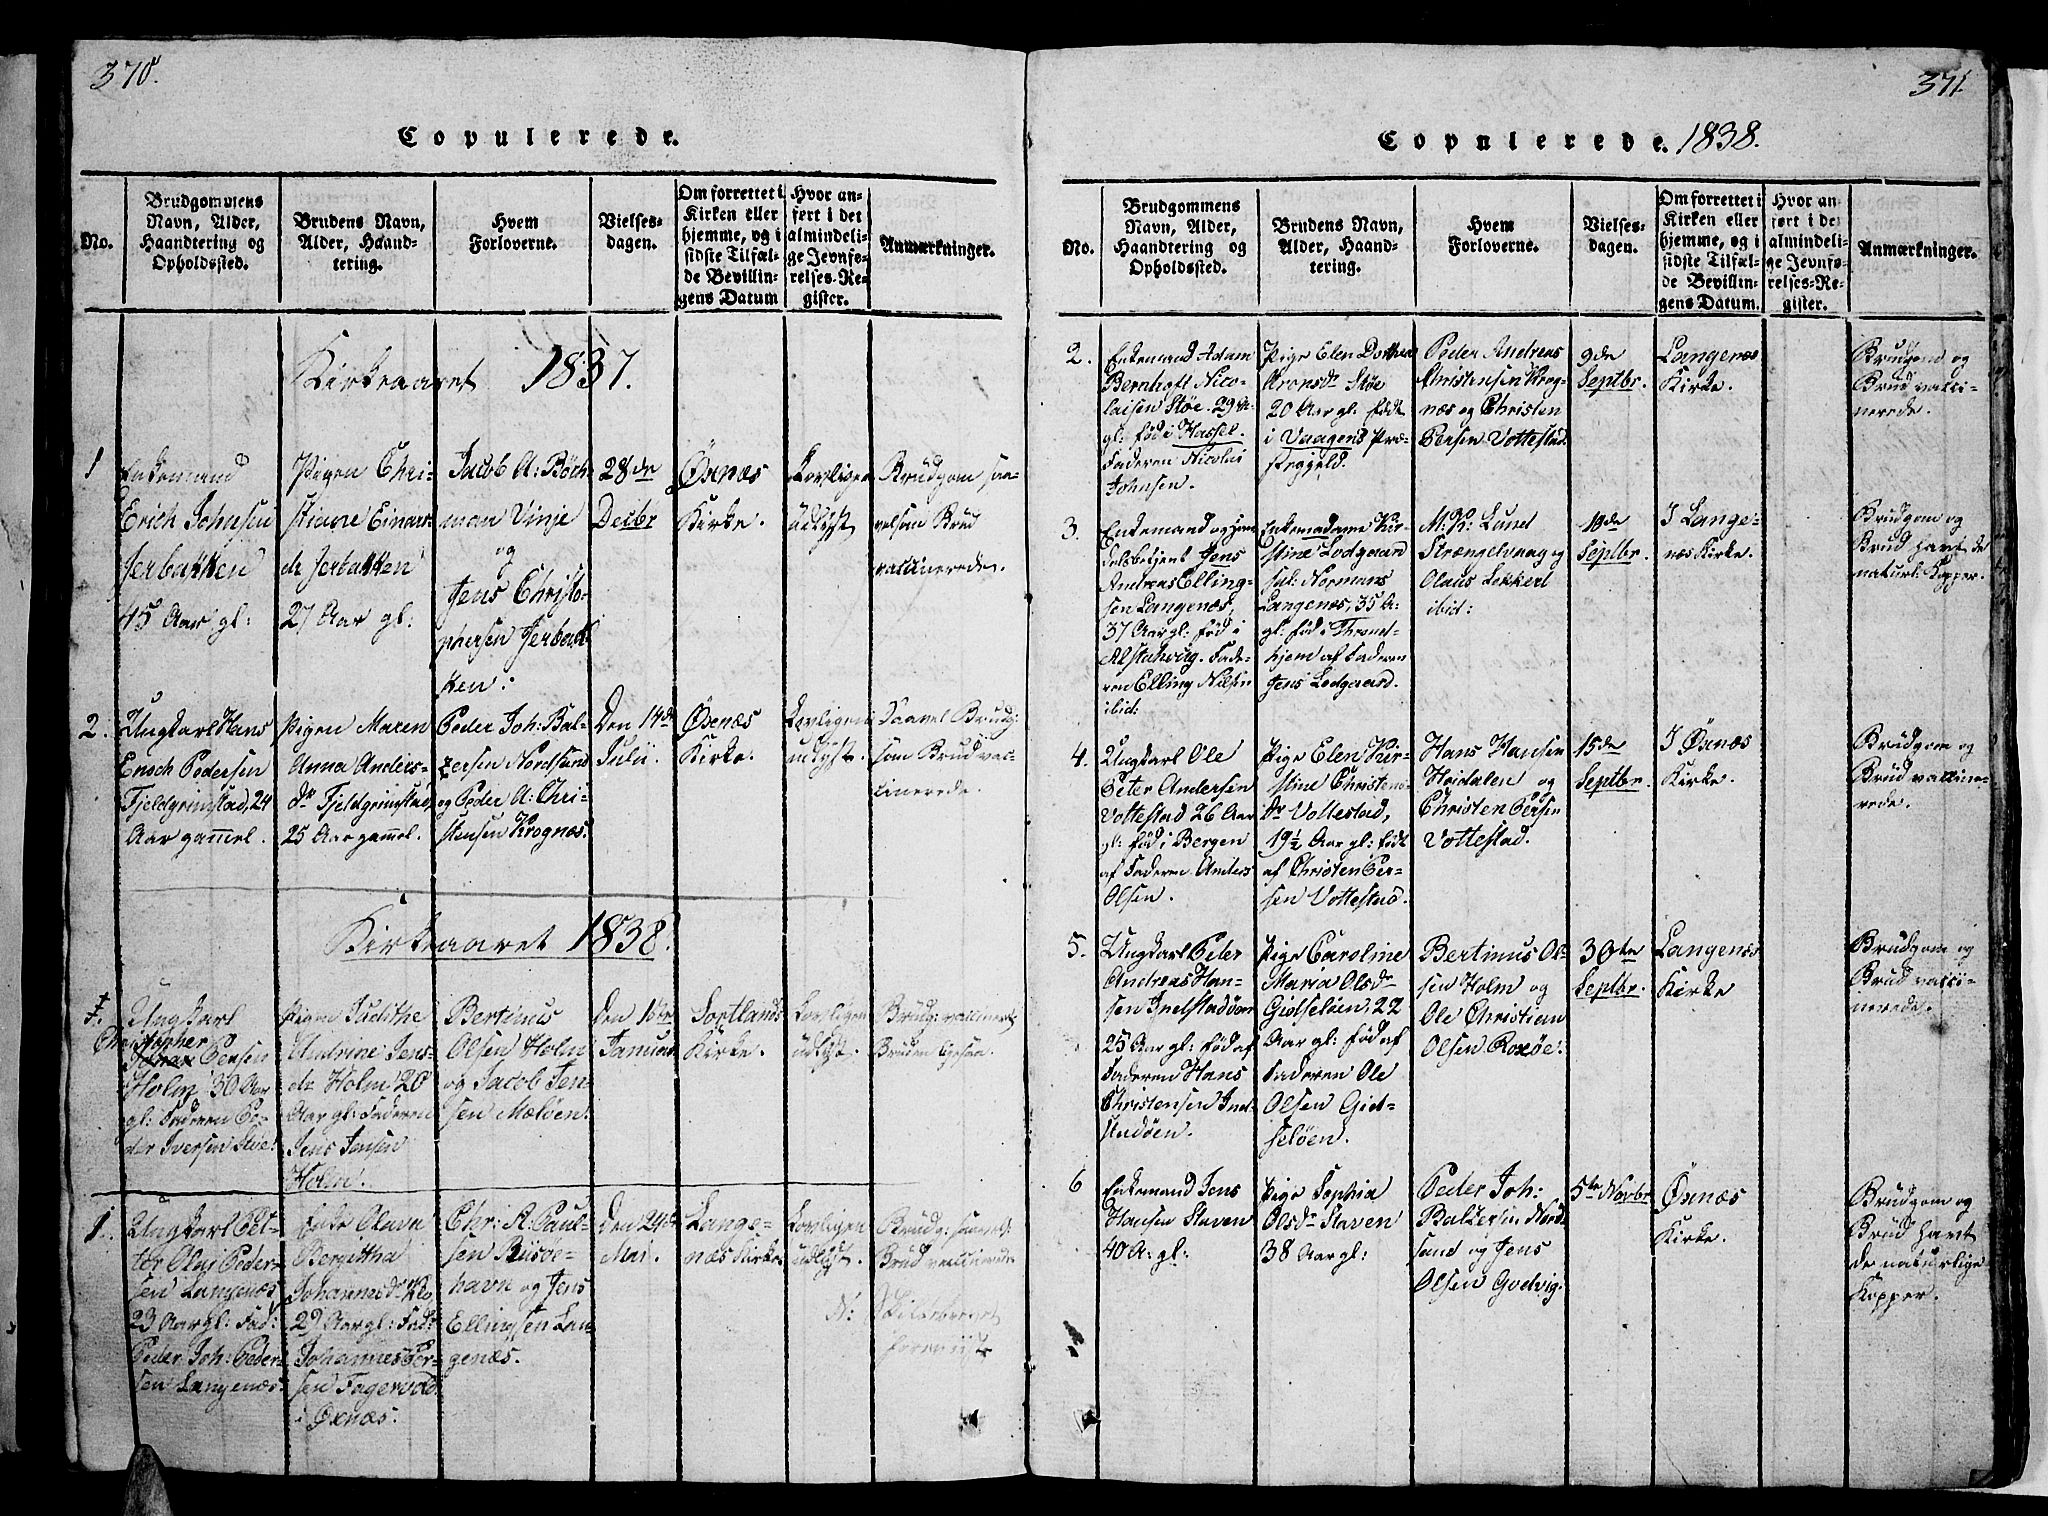 370.
Copulerede.
No.
Brudgommens
Navn, Alder,
Haandtering og
Opholdssted.
Brudens Navn,
Alder, Haand-
tering.
Hvem
Forloverne.
Vielses-
dagen.
Om forrettet i
Kirken eller
hjemme, og i
sidste Tilfæl-
de Bevillin-
gens Datum
Hvor an-
ført i det
almindeli-
ge Jevnfø-
relses-Re-
gister.
Anmærkninger.
Kirkeaaret 1837.
1
Enkemand
Erich Johnsen
Jerbakken
45 Aar gl:
Pigen Chri-
stiane Einars-
dr Jerbakken
27 Aar gl:
Jacob A: Böch-
man Vinje
og
Jens Christo-
phersen Jerbak
ken:
28de
Decbr
Öxnæs
Kirke.
Lovligen
udlyst
Brudgom saa-
velsom Brud
vaccinerede.
2.
Ungkarl Hans
Enoch Pedersen
Fjeldgrimstad, 24
Aar gam̄el.
Pigen Maren
Anna Anders-
dr Fjeldgrimstad,
25 Aar gam̄el.
Peder Joh: Bal-
zersen Nordsand
og Peder A: Chri-
stensen Krognæs:
Den 14de
Julii
Öxnæs
Kirke.
Lovligen
udlyst.
Saavel Brudg:
som Brud vac-
cinerede.
Kirkeaaret 1838.
Ungkarl
Christopher
Persen
Holm 30 Aar
gl: Faderen Pe-
der Iversen
Pigen Judithe
Andrine Jens-
dr Holm 20
Aar gl: Faderen
Jens Jensen
Holm:
Bertinus
Olsen Holm
og Jacob Jen-
sen Mælöen:
Den 16de
Januar
Sortlands
Kirke.
Lovligen
udlyst.
Brudg: vaccineret
Bruden
1.
Ungkarl Pet-
ter Olai Peder-
sen Langenæs
23 Aar gl: Fad:
Peder Joh: Peder-
sen Langenæs
Enke Olava
Bergitha
Johannesdr
29 Aar gl: Fad:
Johannes Per-
sen
i Öxnæs:
Chr: A: Paul-
sen Riisöe-
havn og Jens
Ellingsen Lan-
genæs.
Den 24de
Mai.
Lange-
næs Kirke
Lovligen
udlyst.
Brudg: saavel:
Brud vaccinerede
N:
371
Copulerede. 1838.
No.
Brudgommens
Navn, Alder,
Haandtering og
Opholdssted.
Brudens Navn,
Alder, Haand-
tering.
Hvem
Forloverne.
Vielses-
dagen.
Om forrettet i
Kirken eller
hjemme, og i
sidste Tilfæl-
de Bevillin-
gens Datum.
Hvor an-
ført i det
almindeli-
ge Jevnfø-
relses-Re-
gister.
Anmærkninger.
2.
Enkemand Adam
Bernhoft Nico-
laisen Støe. 29 A:
gl: föd i Hassel.
Faderen Nicolai
Johnsen.
Pige Elen Dorthea
Aronsdr Støe
20 Aar gl: födt
i Vaagens Præ-
stegjeld.
Peder Andreas
Christensen Krog-
næs og Christen
Persen Vottestad.
9de
Septbr.
Langenæs
Kirke.
Brudgom og
Brud vacci-
nerede.
3.
Enkemand og Han-
delsbetjent Jens
Andreas Elling-
sen Langenæs,
37 Aar gl: föd i
Alstahoug. Fade-
ren Elling Nilsen
ibid:
Enkemadame Kir-
stine Lodgaard
sal: Normans
Langenæs, 35 A:
gl: föd i Thrond-
hjem af Faderen
Jens Lodgaard.
M: K: Lund
Strængelvaag og
Olaus Lekkert
ibid:
13de
Septbr.
I Lange-
næs Kirke.
Brudgom og
Brud havt de
naturl: Kopper.
4.
Ungkarl Ole
Peter Andersen
Vottestad 26 Aar
gl: föd i Bergen
af Faderen Anders
Olsen.
Pige Elen Kir-
stine Christens-
dr Vottestad,
19½ Aar gl: födt
af Christen Per-
sen Vottestad.
Hans Hansen
Heidalen og
Christen Persen
Vottestad.
15de
Septbr.
I Öxnæs
Kirke.
Brudgom og
Brud vaccine-
rede.
5.
Ungkarl Peder
Andreas Han-
sen Indstadöen
25 Aar gl: föd af
Faderen Hans
Christensen Ind-
stadöen.
Pige Caroline
Maria Olsdr
Gidselöen, 22
Aar gl: föd af
Faderen Ole
Olsen Gid-
selöen.
Bertinus Ol-
sen Holm og
Ole Christian
Olsen Roxöe:
30te
Septbr.
Langenæs
Kirke
Brudgom og
Brud vacci-
nerede.
6
Enkemand Jens
Hansen Staven
40 A: gl:
Pige Sophia
Olsdr Staven
38 Aar gl:
Peder Joh:
Balzersen Nord-
sand og Jens
Olsen Godvig.
5te Novbr
Öxnæs
Kirke.
Brudgom og
Brud havt
de naturlige
Kopper.